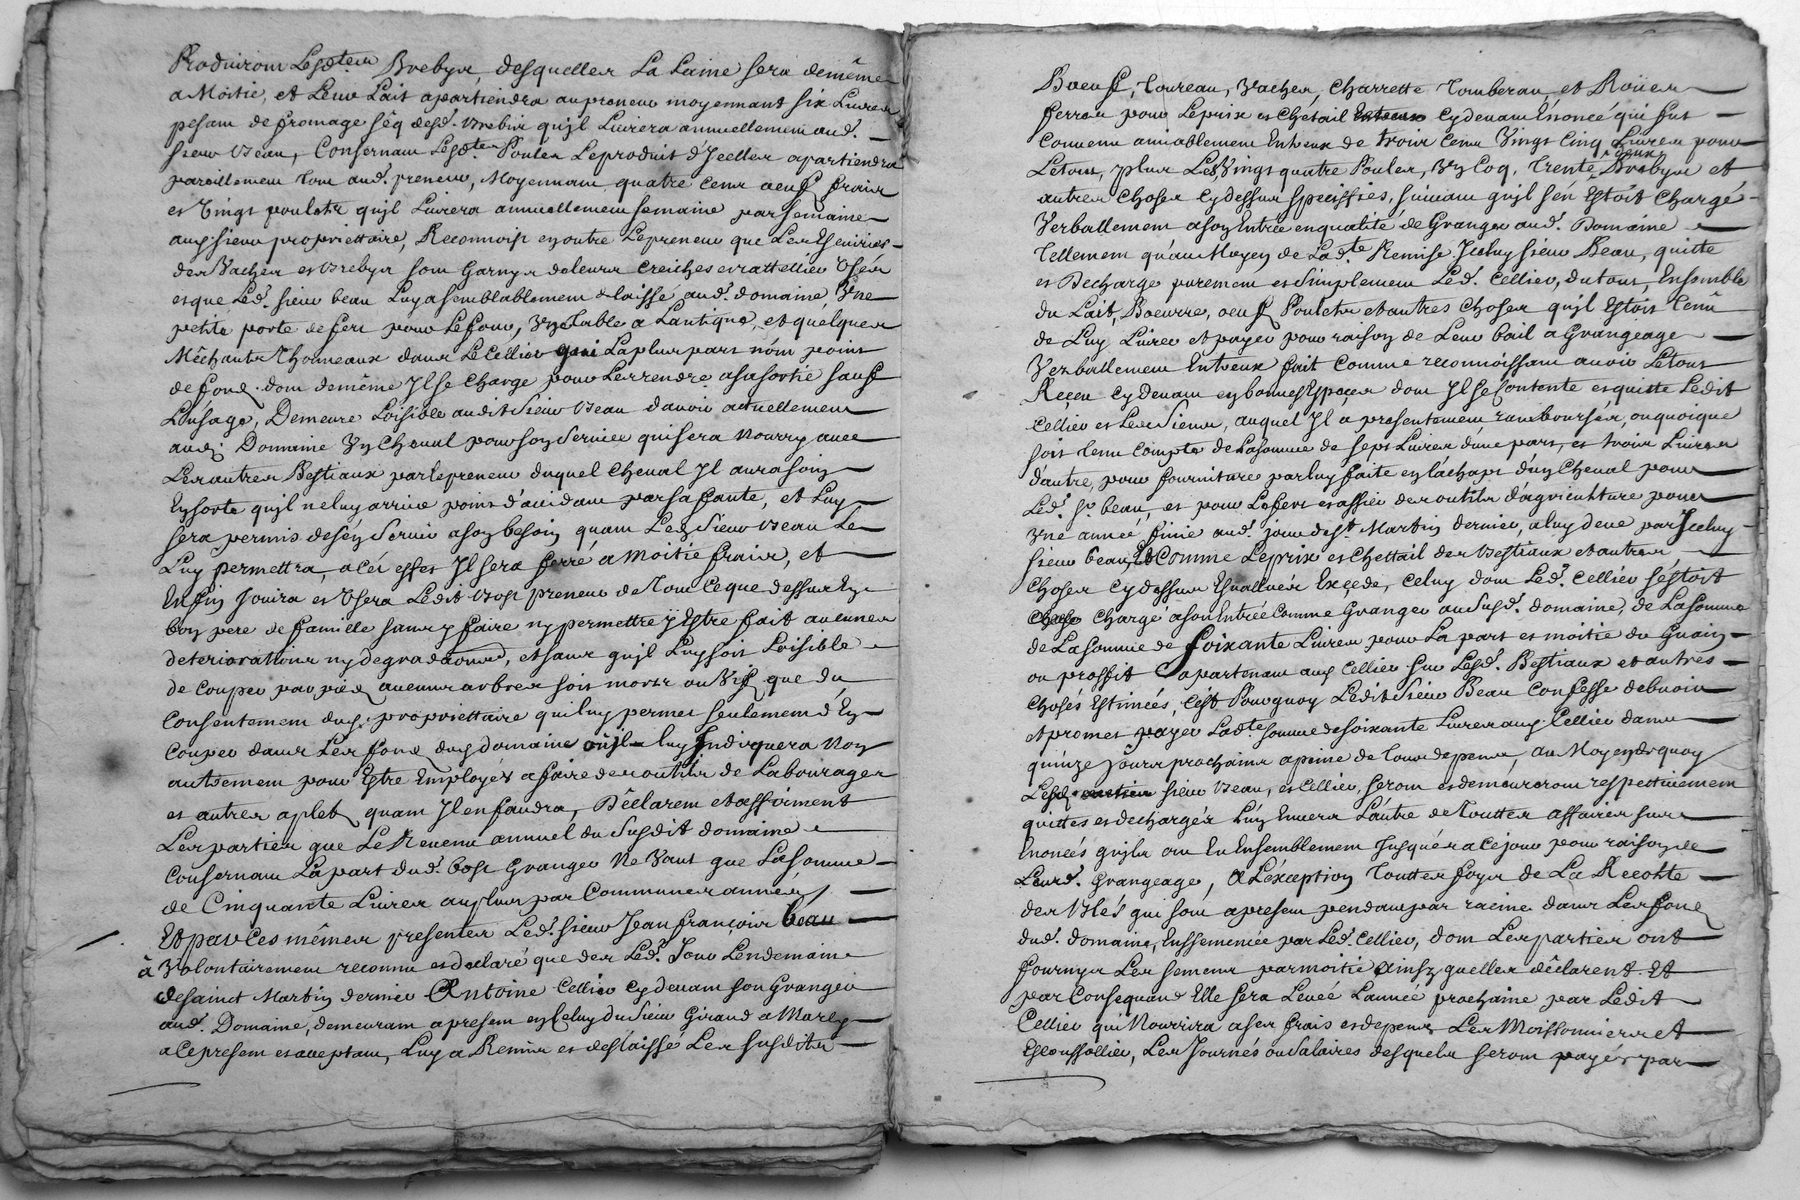 Produiront Lesd.tes Brebys, desquelles La Laine sera demême
a Moitié, et Leur Lait apartiendra au preneur moyennant six Livres
pesant de fromage séq desd. brebis qu'jl Livrera annuellement aud.
sieur beau, Consernant Lesd.tes Poules Le produit d'Jcelles apartiendra
pareillement tout aud. preneur, Moyennant quatre cent oeuf frais
et Vingt poulets qu'jl Livrera annuellement semaine par semaine
aud sieur propriettaire, Reconnoist en outre Le preneur que Les Escuiries
des Vaches et brebys sont Garnys de leurs creiches et rattelliers Usés
et que Led. sieur beau Luy a semblablement delaissé aud. domaine Vne
petite porte de fert pour Le four, Vne table a Lantique, et quelques
Mêchants thonneaux dans Le Cellier qui La plus part nónt point
de fond. dont demême Jl se Charge pour Les rendre a sa sortie sauf
L'usage, Demeure Loisible audit Sieur beau d'avoir actuellement
aud. Domaine Vn Cheval pour son Service qui sera Nourry avec
Les autres Bestiaux par le preneur duquel Cheval Jl aura soin
En sorte qu'jl ne luy arrive point d'accidant par sa faute, et Luy
sera permis de s'en Servir a son besoin quant Led Sieur beau Le
Luy permettra, a cét effet Jl sera ferré a Moitié frais, et
Enfin Jouira et Usera Ledit bost preneur de Tout Ce que dessus En
bon pere de famille sans y faire ny permettre y Estre fait aucunes
deteriorations ny degradations, et sans qu'jl Luy soit Loisible
de Couper par pied aucuns arbres soit morts ou Vif que du
Consentement dud. propriettaire qui luy permet seulement d'En
Couper dans Les fond dud domaine où jl luy Indiquera Non
autrement pour Estre Employés a faire des outils de Labourages
et autres aplet quant Jl en faudra, Déclarent et affirment
Les parties que Le Revenu annuel du Susdit domaine
Consernant La part dud. bost Granger Ne Vaut que La somme
de Cinquante Livres au plus par Communes années
Et par Ces mêmes presentes Led. sieur Jean françois beau
à Volontairement reconnu et declaré que des Led. Jour Lendemain
de saint Martin dernier Antoine Cellier Cy devant son Granger
aud. Domaine, demeurant apresent en Celuy du Sieur Giraud a Marly
a ce present et acceptant, Luy a Remis et deslaissé Les susdits
Boeuf, Toureau, Vaches, Charrette Tomberau, et Roües
ferrées pour Le prix et Chétail Cy devant Énoncé qui fut
Convenu amiablement Entreux de trois Cent Vingt Cinq Livres pour
Le tout, plus Les Vingt quatre Poules, Vn Coq, Trente deux Brebys et
autres Choses Cy dessus speciffiés, suivant qu'jl s'en Estoit Chargé
Verballement a son Entrée en qualité de Granger aud. Domaine
Tellement qu'au Moyen de Lad.te Remise Jceluy sieur Beau, quitte
et Decharge purement et Simplement Led. Cellier, du tout, Ensemble
du Lait, Boeurre, oeuf Poulets et autres Choses qu'jl Estoit Tenû
de Luy Livrer et payer pour raison de Leur bail a Grangeage
Verballement Entreux fait Comme reconnoissant avoir Le tout
Receu Cy devant en bonnes Especes dont Jl se Contente et quitte Ledit
Cellier et Les Siens, auquel Jl a presentement rambourser, ou quoique
soit tenu Compte de La somme de sept Livres d'une part, et trois Livres
d'autre, pour fourniture par luy faite en Láchapt d'un Cheval pour
Led. Sr. beau, et pour Le fert et assier des outils d'agriculture pour
Vne année finie aud. jour de St. Martin dernier, a luy deue par Jceluy
sieur beau, Et Comme Le prix et Chettail des Bestiaux et autres
Choses Cy dessus Esvalluées Excede, Celuy dont Led. Cellier s'éstoit
Chargé a son Entrée Comme Granger au Susd. domaine, de La somme
de La somme de soixante Livres pour La part et moitié du Guain
ou proffit apartenant aud Cellier sur Lesd. Bestiaux et autres
Chosés Estimées, C'est Pourquoy Ledit Sieur Beau Confesse debvoir
et promet payer Ladte somme de soixante Livres aud. Cellier dans
quinze jours prochains a peine de Tous depens, au Moyen de quoy
Lesd sieur beau, et Cellier, seront et demeureront respectivement
quittes et dechargés L'ún Envers L'autre de Touttes affaires sus
Enoncés qu'ils ont Eu Ensemblement Jusqués a Ce jour pour raison de
Leurd. Grangeage, A L'éxception Touttes foys de La Recolte
des blés qui sont apresent pendant par racine dans Les fond
dud. domaine, Enssemencée par Led. Cellier, dont Les parties ont
fournys Les semens par moitié ainsy quelles déclarent Et
par Consequand Elle sera Levée Lannée prochaine par Ledit
Cellier qui Nourrira a ses frais et depens Les Moissonniers et
Escoussolliers, Les Journés ou salaires desquels seront payés par